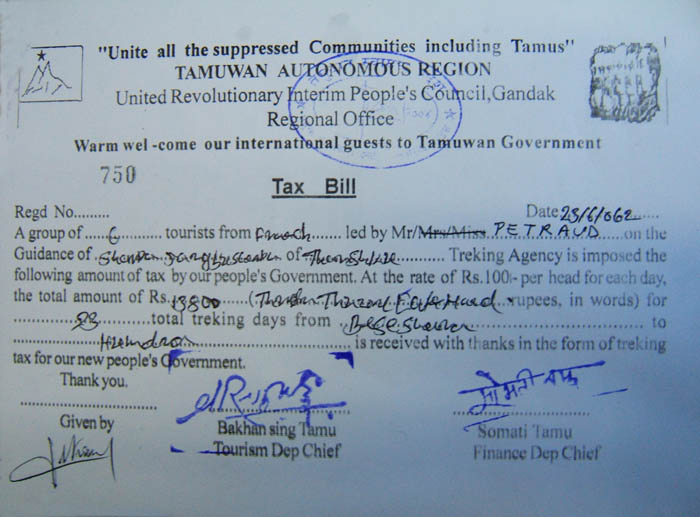 "Unite all the suppressed Communities including Tamus"
TAMUWAN AUTONOMOUS REGION
United Revolutionary Interim People's Council,Gandak
Regional Office
Warm wel-come our international guests to Tamuwan Government
750
Tax Bill
Regd No.......... Date 23/6/062
A group of 6 tourists from French led by Mr/Mrs/Miss PETRAUD on the
Guidance of of Treking Agency is imposed the
following amount of tax by our people's Government. At the rate of Rs.100/- per head for each day,
the total amount of Rs. 13800 (Thirteen Thousand Eight Hundred rupees, in words) for
23 total treking days from Besishahar to
is received with thanks in the form of treking
tax for our new people's Government.
Thank you.
Given by
Bakhan sing Tamu
Tourism Dep Chief
Somati Tamu
Finance Dep Chief